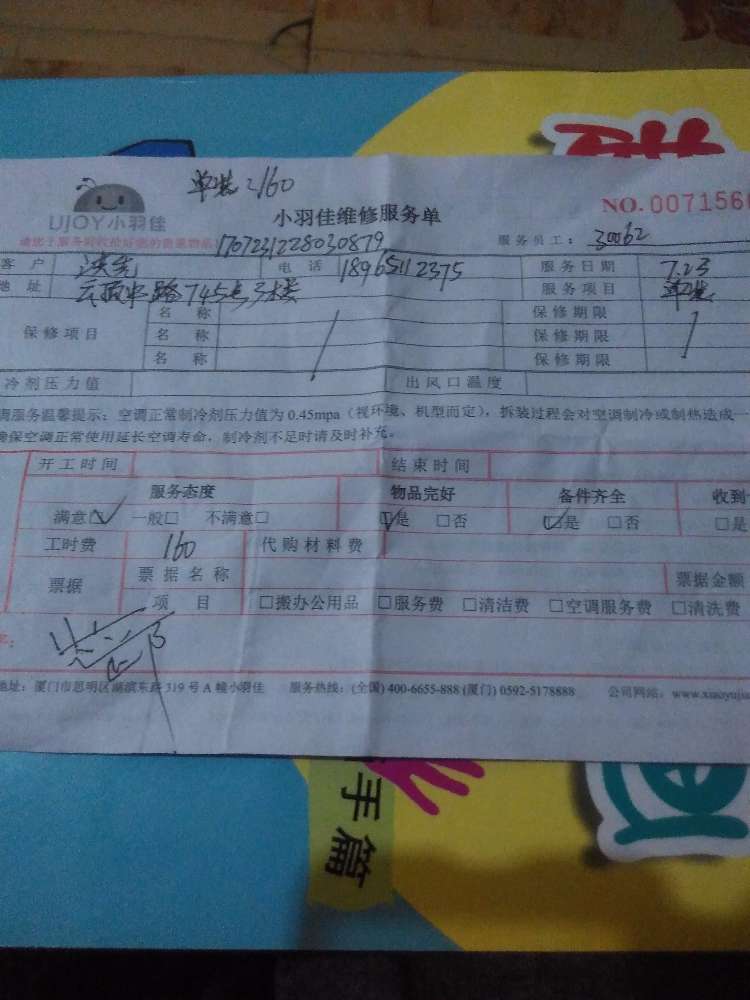 单装 160
LIJOY小羽佳
小羽佳维修服务单
NO. 0071560
请您于服务时收拾好您的贵重物品!
1707231228030879
服务员工: 30062
客 户 电 话 18965112375 服务日期 7.23
地 址 云顶中路745号3楼 服务项目 单装
保修项目 名 称 保修期限
名 称 保修期限
名 称 保修期限
冷剂压力值 出风口温度
调服务温馨提示: 空调正常制冷剂压力值为 0.45mpa (视环境、机型而定), 拆装过程会对空调制冷或制热造成一
确保空调正常使用延长空调寿命, 制冷剂不足时请及时补充。
开工时间 结束时间
服务态度 物品完好 备件齐全 收到
满意☑ 一般□ 不满意□ ☑是 □否 ☑是 □否 □是
工时费 160 代购材料费
票据 票据名称 票据金额
项 目 □搬办公用品 □服务费 □清洁费 □空调服务费 □清洗费
地址: 厦门市思明区湖滨东路 319 号 A 幢小羽佳 服务热线: (全国) 400-6655-888 (厦门) 0592-5178888 公司网站: www.xiaoyujia
手篇